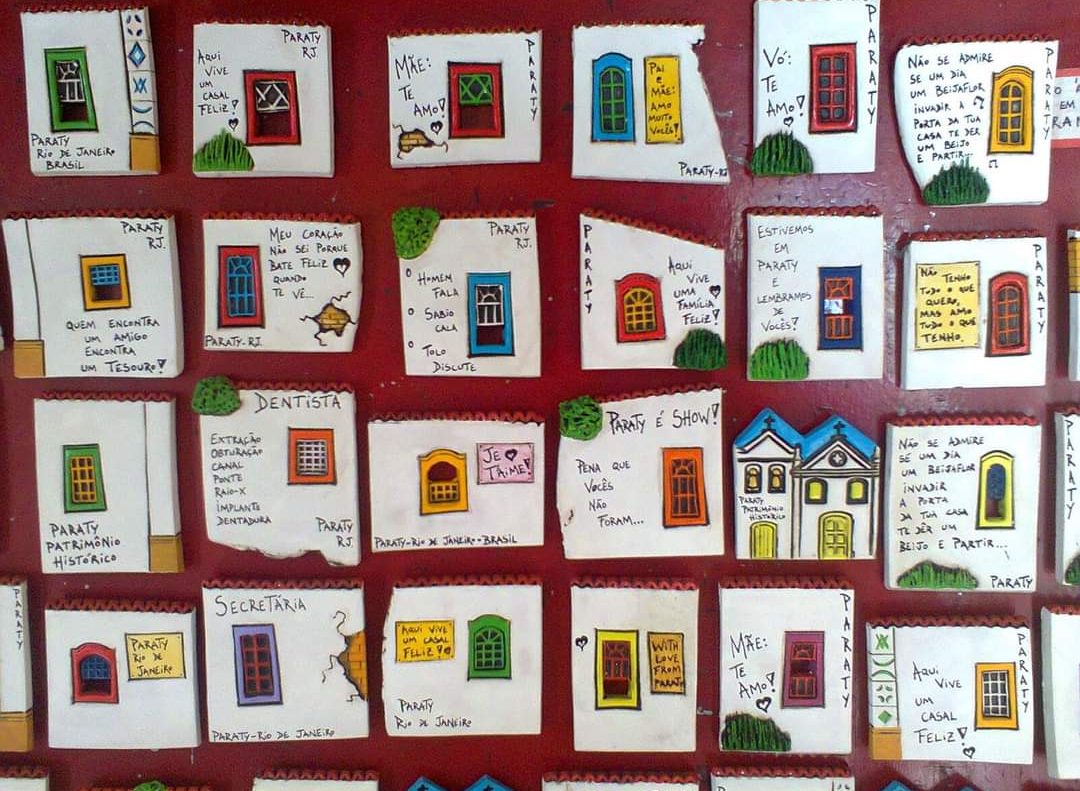 PARATY
RIO DE JANEIRO
BRASIL
PARATY
RJ.
AQUI
VIVE
UM
CASAL
FELIZ!
MÃE:
TE
AMO!
PARATY
PAI
E
MÃE:
AMO
MUITO
VOCÊS!
PARATY-RJ
VÓ:
TE
AMO!
PARATY
NÃO SE ADMIRE
SE UM DIA
UM BEIJAFLOR
INVADIR A
PORTA DA TUA
CASA TE DER
UM BEIJO
E PARTIR...
PARATY
EM
PARATY
RJ.
QUEM ENCONTRA
UM AMIGO
ENCONTRA
UM TESOURO!
MEU CORAÇÃO
NÃO SEI PORQUE
BATE FELIZ
QUANDO
TE VÊ...
PARATY-RJ.
PARATY
RJ.
HOMEM
FALA
SÁBIO
CALA
TOLO
DISCUTE
PARATY
AQUI
VIVE
UMA
FAMÍLIA
FELIZ!
ESTIVEMOS
EM
PARATY
E
LEMBRAMOS
DE
VOCÊS!
NÃO TENHO
TUDO O QUE
QUERO,
MAS AMO
TUDO O QUE
TENHO.
PARATY
PARATY
PATRIMÔNIO
HISTÓRICO
DENTISTA
EXTRAÇÃO
OBTURAÇÃO
CANAL
PONTE
RAIO-X
IMPLANTE
DENTADURA
PARATY
RJ.
JE
T'AIME!
PARATY-RIO DE JANEIRO-BRASIL
PARATY É SHOW!
PENA QUE
VOCÊS
NÃO
FORAM...
PARATY
PATRIMÔNIO
HISTÓRICO
NÃO SE ADMIRE
SE UM DIA
UM BEIJAFLOR
INVADIR
A PORTA
DA TUA CASA
TE DER UM
BEIJO E PARTIR...
PARATY
PARATY
PARATY
PARATY
RIO DE
JANEIRO
SECRETÁRIA
PARATY-RIO DE JANEIRO
AQUI VIVE
UM CASAL
FELIZ!
PARATY
RIO DE JANEIRO
WITH
LOVE
FROM
PARATY
MÃE:
TE
AMO!
PARATY
AQUI
VIVE
UM
CASAL
FELIZ!
PARATY